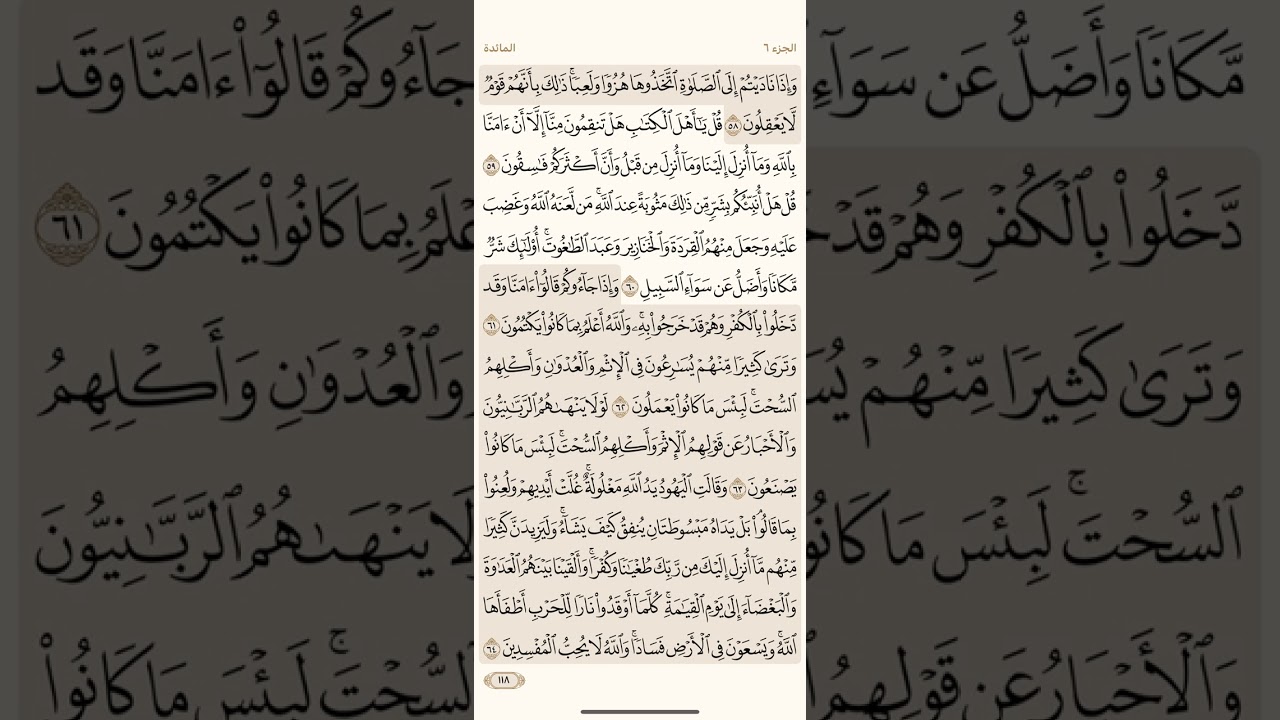 الجزء ٦
المائدة
وَإِذَا نَادَيْتُمْ إِلَى ٱلصَّلَوٰةِ ٱتَّخَذُوهَا هُزُوًا وَلَعِبًا ۚ ذَٰلِكَ بِأَنَّهُمْ قَوْمٌ
لَّا يَعْقِلُونَ ٥٨ قُلْ يَـٰٓأَهْلَ ٱلْكِتَـٰبِ هَلْ تَنقِمُونَ مِنَّآ إِلَّآ أَنْ ءَامَنَّا
بِٱللَّهِ وَمَآ أُنزِلَ إِلَيْنَا وَمَآ أُنزِلَ مِن قَبْلُ وَأَنَّ أَكْثَرَكُمْ فَـٰسِقُونَ ٥٩
قُلْ هَلْ أُنَبِّئُكُم بِشَرٍّ مِّن ذَٰلِكَ مَثُوبَةً عِندَ ٱللَّهِ ۚ مَن لَّعَنَهُ ٱللَّهُ وَغَضِبَ
عَلَيْهِ وَجَعَلَ مِنْهُمُ ٱلْقِرَدَةَ وَٱلْخَنَازِيرَ وَعَبَدَ ٱلطَّـٰغُوتَ ۚ أُو۟لَـٰٓئِكَ شَرٌّ
مَّكَانًا وَأَضَلُّ عَن سَوَآءِ ٱلسَّبِيلِ ٦٠ وَإِذَا جَآءُوكُمْ قَالُوٓا۟ ءَامَنَّا وَقَد
دَّخَلُوا۟ بِٱلْكُفْرِ وَهُمْ قَدْ خَرَجُوا۟ بِهِۦ ۚ وَٱللَّهُ أَعْلَمُ بِمَا كَانُوا۟ يَكْتُمُونَ ٦١
وَتَرَىٰ كَثِيرًا مِّنْهُمْ يُسَـٰرِعُونَ فِى ٱلْإِثْمِ وَٱلْعُدْوَٰنِ وَأَكْلِهِمُ
ٱلسُّحْتَ ۚ لَبِئْسَ مَا كَانُوا۟ يَعْمَلُونَ ٦٢ لَوْلَا يَنْهَىٰهُمُ ٱلرَّبَّـٰنِيُّونَ
وَٱلْأَحْبَارُ عَن قَوْلِهِمُ ٱلْإِثْمَ وَأَكْلِهِمُ ٱلسُّحْتَ ۚ لَبِئْسَ مَا كَانُوا۟
يَصْنَعُونَ ٦٣ وَقَالَتِ ٱلْيَهُودُ يَدُ ٱللَّهِ مَغْلُولَةٌ ۚ غُلَّتْ أَيْدِيهِمْ وَلُعِنُوا۟
بِمَا قَالُوا۟ ۘ بَلْ يَدَاهُ مَبْسُوطَتَانِ يُنفِقُ كَيْفَ يَشَآءُ ۚ وَلَيَزِيدَنَّ كَثِيرًا
مِّنْهُم مَّآ أُنزِلَ إِلَيْكَ مِن رَّبِّكَ طُغْيَـٰنًا وَكُفْرًا ۚ وَأَلْقَيْنَا بَيْنَهُمُ ٱلْعَدَٰوَةَ
وَٱلْبَغْضَآءَ إِلَىٰ يَوْمِ ٱلْقِيَـٰمَةِ ۚ كُلَّمَآ أَوْقَدُوا۟ نَارًا لِّلْحَرْبِ أَطْفَأَهَا
ٱللَّهُ ۚ وَيَسْعَوْنَ فِى ٱلْأَرْضِ فَسَادًا ۚ وَٱللَّهُ لَا يُحِبُّ ٱلْمُفْسِدِينَ ٦٤
١١٨